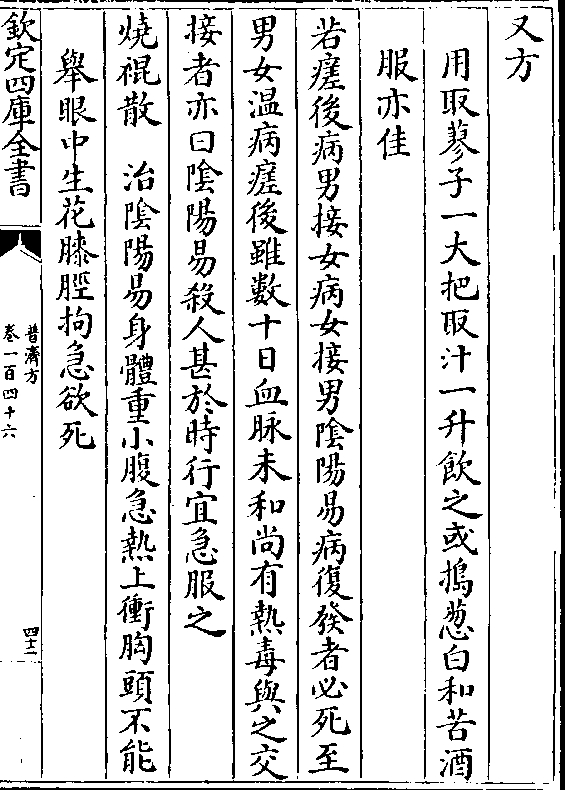 又方
用取蓼子一大把取汁一升飲之或搗葱白和苦酒
服亦佳
若瘥後病男接女病女接男陰陽易病復發者必死至
男女温病瘥後雖數十日血脉未和尚有熱毒與之交
接者亦曰陰陽易殺人甚於時行宜急服之
燒裩散 治陰陽易身體重小腹急熱上衝胸頭不能
舉眼中生花膝脛拘急欲死
欽定四庫全書
普濟方
卷一百四十六
四十二